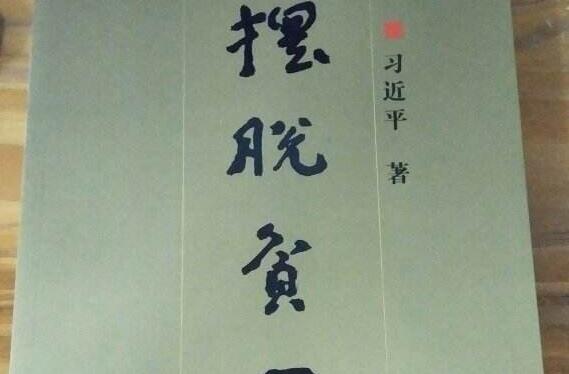 习近平 著
摆脱贫